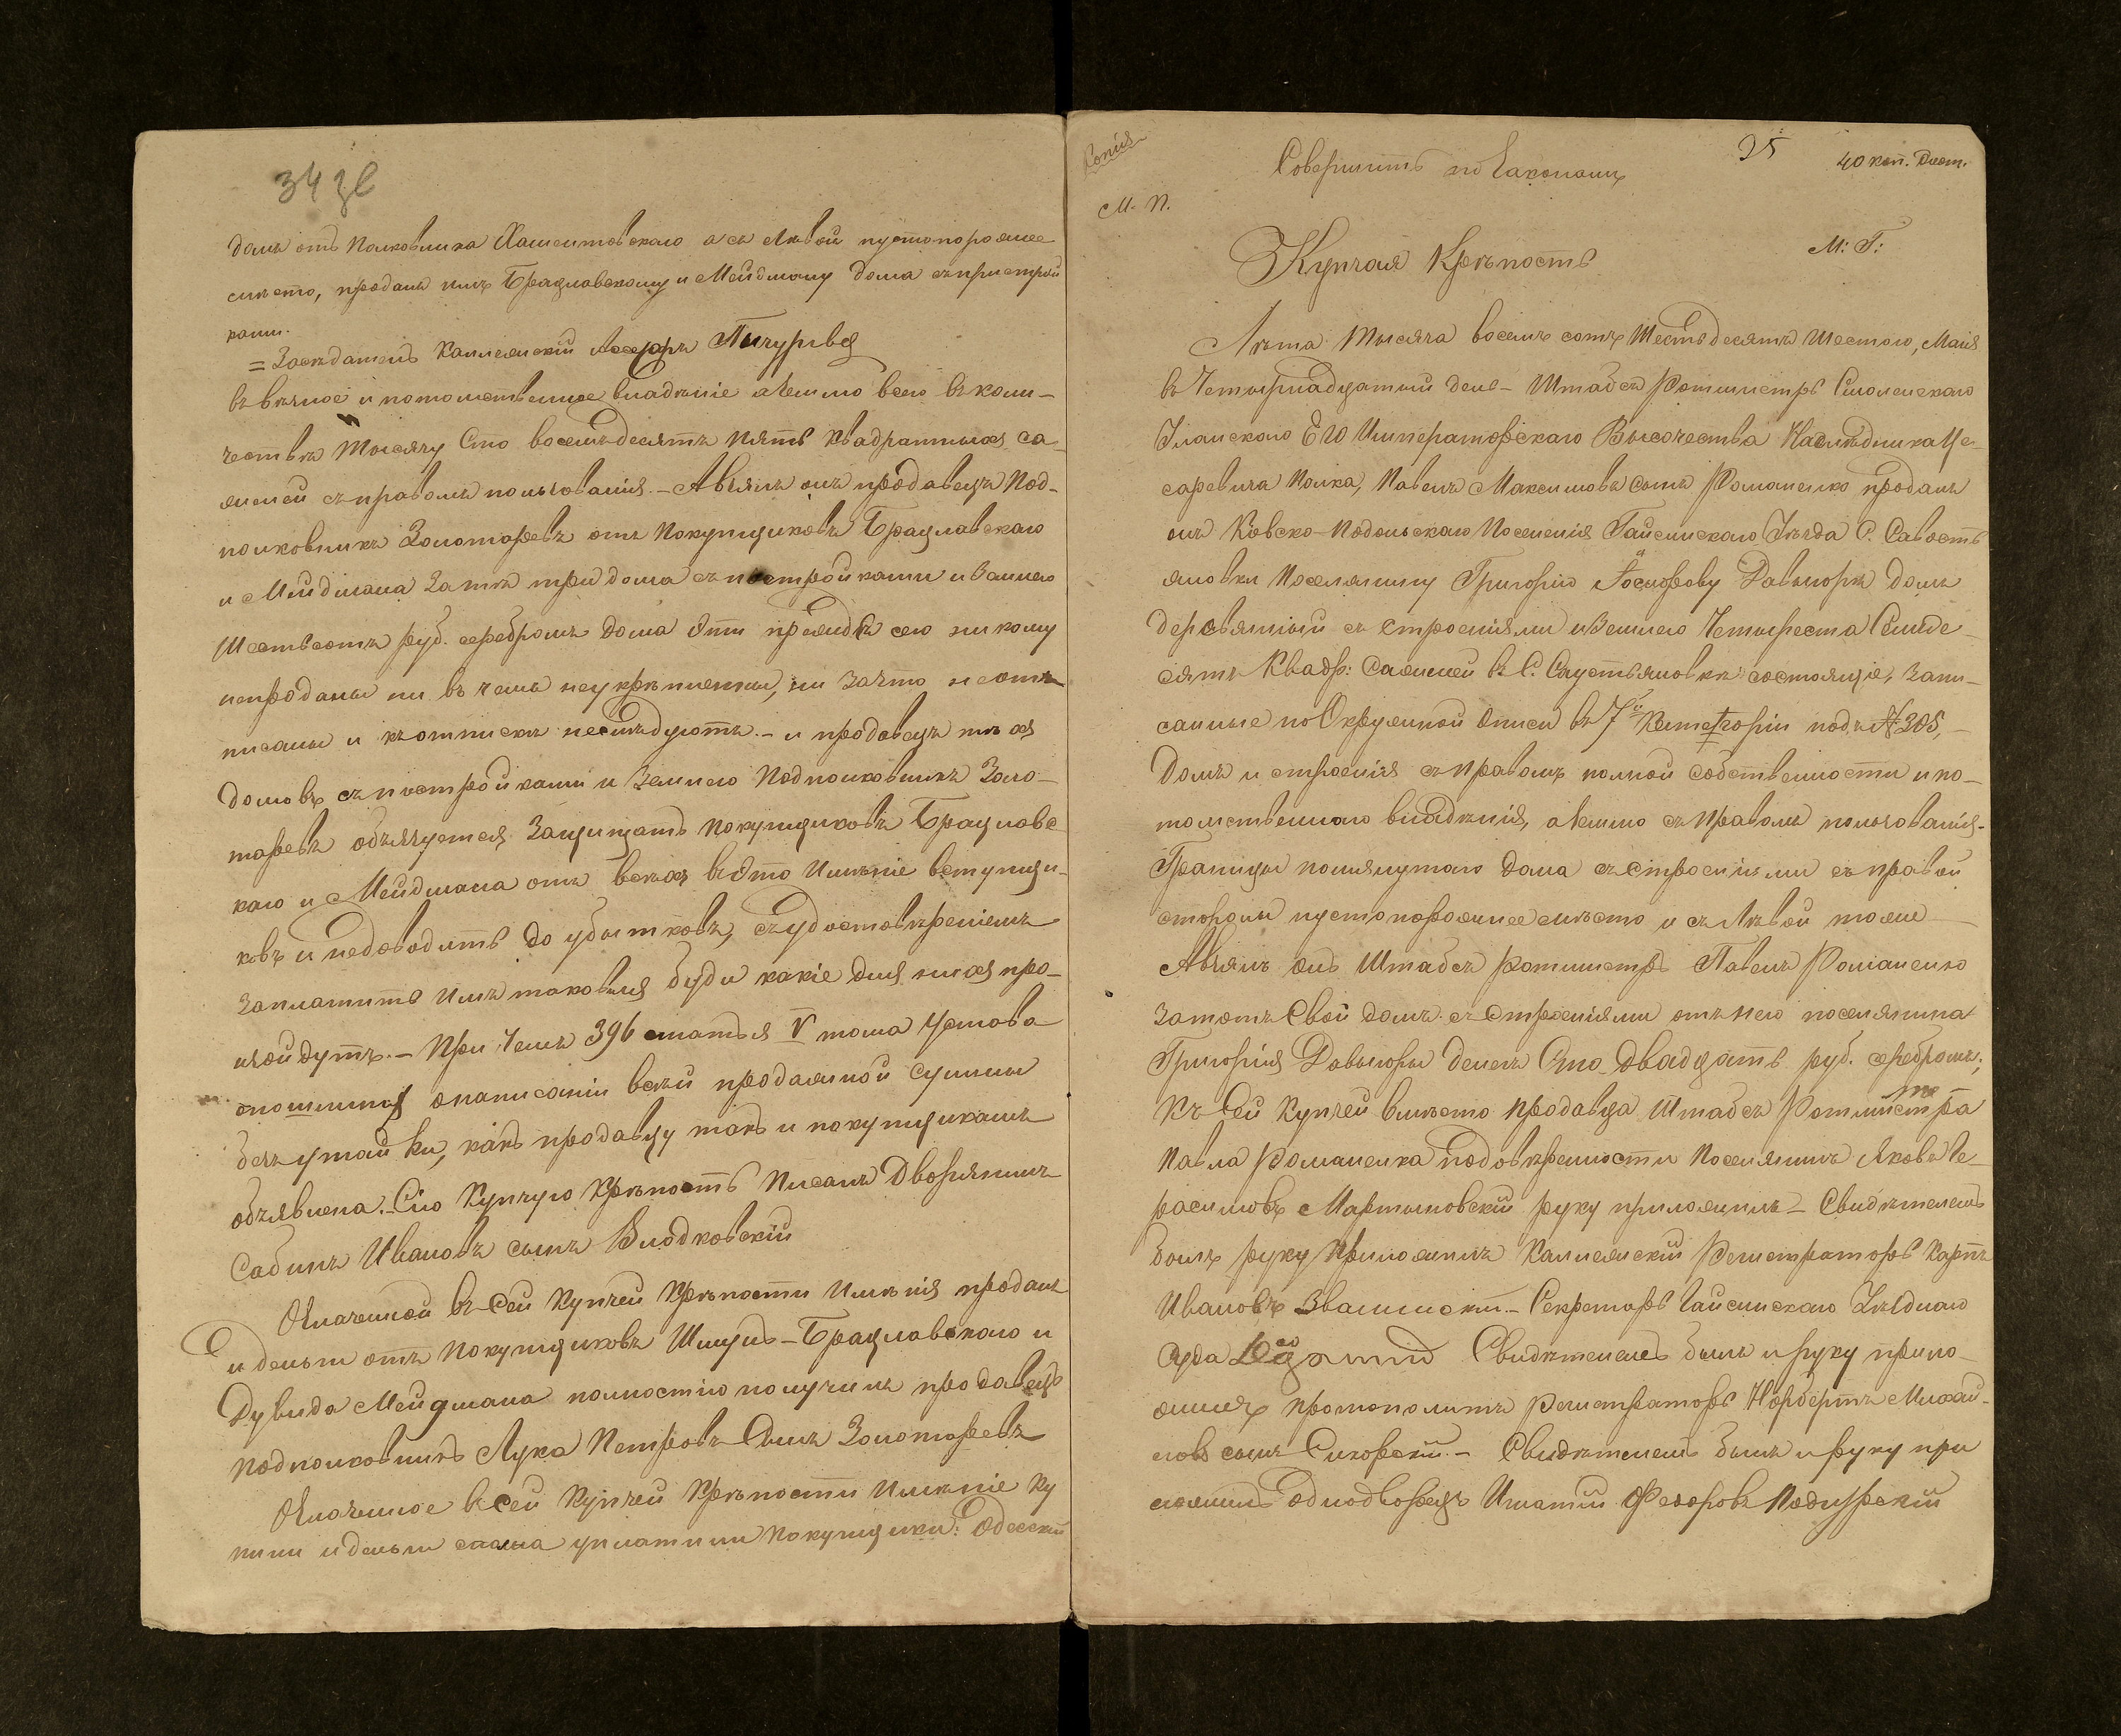 34 зв
домъ отъ Полковника Хашентовскаго а съ лѣвой пустопорожнее
мѣсто, продалъ имъ Брацлавскому и Мейдману дома съ пристрой
ками.
= Засѣдатель Коллежскій Ассесоръ
въ вѣчное и потомственное владѣніе а Землю всего въ коли-
чествѣ тысячу Сто восемьдесятъ пять квадратныхъ са-
женей съ правомъ пользованія. – А взялъ онъ продавецъ Под-
полковникъ Золотаревъ отъ покупщиковъ Брацлавскаго
и Мейдмана За тѣ три дома съ построй ками и Землею
Шестьсотъ руб. серебромъ дома Эти прежде сего никому
непроданы ни въ чемъ неукрѣплены, ни За что неотъ
писаны и къ отпискѣ неслѣдуютъ. – и продавецъ тѣхъ
домовъ съ построй ками и Землею Подполковникъ Золо-
таревъ обязуется Защищать покупщиковъ Брацлавс
каго и Мейдмана отъ всѣхъ въ Это Имѣніе вступщи-
ковъ и недоводить до убытковъ, съ удостовѣреніемъ
Заплатить Имъ таковыя буди какіе для нихъ про-
изойдутъ. – При чемъ 396 статья V тома Устава
опошлинахъ онаписаніи всей продажной суммы
безъ утай ки, какъ продавцу такъ и покупщикамъ
объявлена. Сію Купчую крѣпость писалъ Дворянинъ
Сабинъ Ивановъ сынъ Влодковскій
Означенной въ Сей Купчей крѣпости Имѣнія продалъ
и деньги отъ покупщиковъ Шмуль – Брацлавскаго и
Дувида Мейдмана полностію получилъ продавецъ
подполковникъ Лука Петровъ Сынъ Золотаревъ
Означенное въ сей Купчей крѣпости Имѣніе ку
пили и деньги сполна уплатили покупщики: Одесскій
Копія
Совершить по Законамъ
35
40 коп. Дост.
М. П.
Купчая Крѣпость
М: Г:
Лѣта тысяча восемь сотъ Шестьдесятъ Шестого, Маія
въ Четырнадцатый день – Штабсъ Ротмистръ Смоленскаго
Уланскаго Его Императорскаго Высочества Наслѣдника Це-
саревича Полка, Павелъ Максимовъ сынъ Романенко продалъ
онъ Кіевско-Подольскаго Поселенія Гайсинскаго Уѣзда С. Савость
яновки Поселянину Григорію Давыдорѣ домъ
деревянный съ строеніями и Землею Четыреста Семьде-
сятъ Квадр: Саженей въ С. состоящіе, Запи-
санные по Окружной Описи въ 7й Категоріи подъ № 305, –
Домъ и строенія съ правомъ полной собственности и по-
томственнаго владѣнія, а Землю съ правомъ пользованія. –
Границы помянутаго дома съ строеніями съ правой
стороны пустопорожнее мѣсто и съ лѣвой тоже
А взялъ онъ Штабсъ Ротмистръ Павелъ Романенко
За тотъ Свой домъ съ Строеніями отъ него поселянина
Григорія денегъ Сто двадцать руб. серебромъ;
Къ Сей Купчей вмѣсто продавца Штабсъ Ротмистра
Павла Романенка по довѣренности Поселянинъ Яковъ Ге-
расимовъ Мартыновскій руку приложилъ – Свидѣтелемъ
былъ руку приложилъ Коллежскій Регистраторъ Карпъ
Ивановъ – Секретарь Гайсинскаго Уѣзднаго
Суда Свидѣтелемъ былъ и руку прило-
жилъ протоколистъ Регистраторъ Норбертъ Михай-
ловъ сынъ Сикорскій. – Свидѣтелемъ былъ и руку при
ложилъ Однодворецъ Игнатій Федоровъ